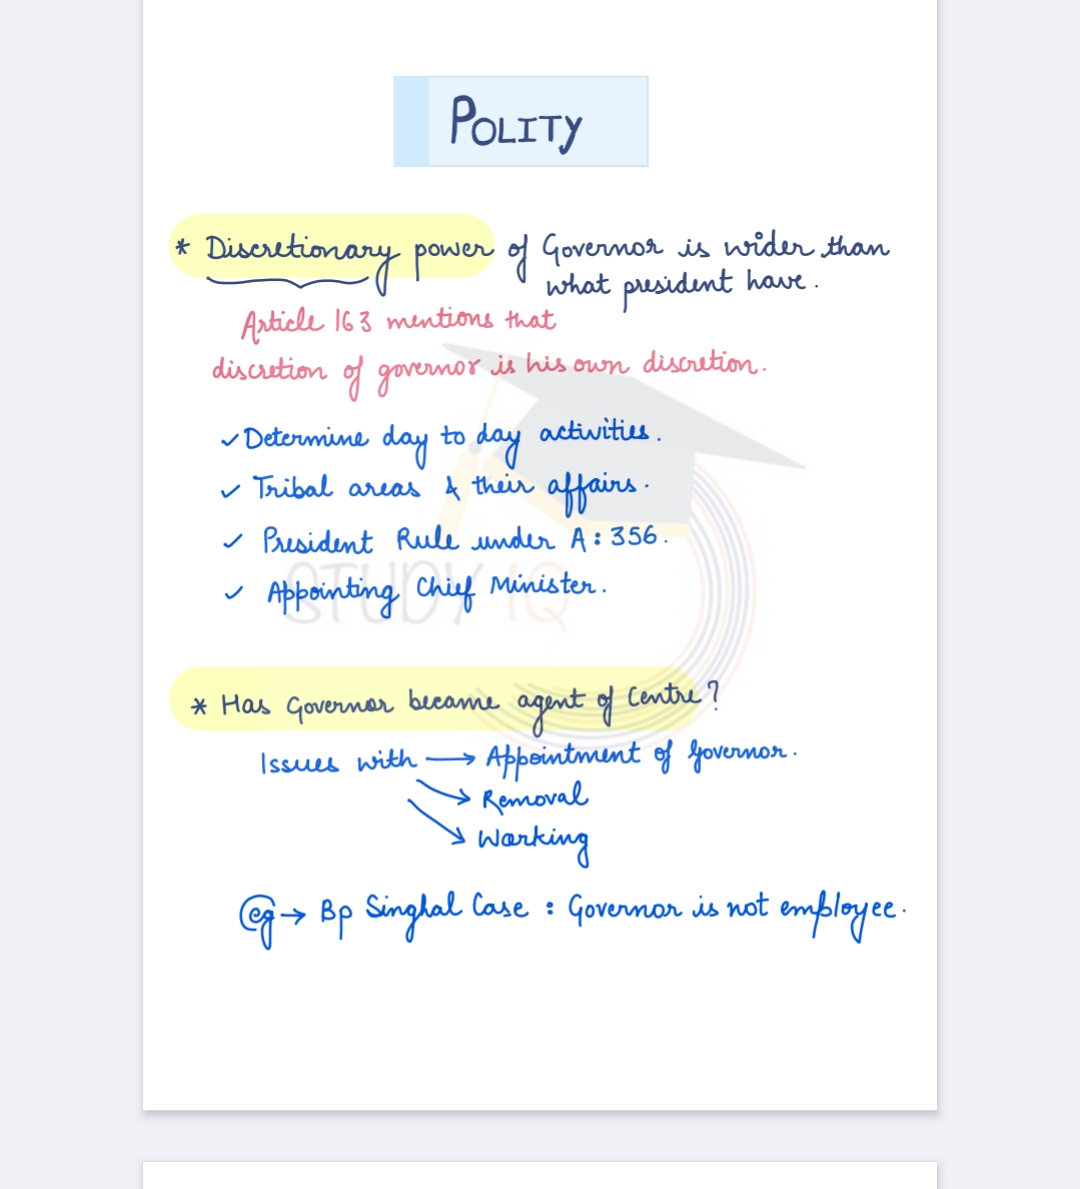 POLITY
* Discretionary power of Governor is wider than
what president have.
Article 163 mentions that
discretion of governor is his own discretion.
✓ Determine day to day activities.
✓ Tribal areas & their affairs.
✓ President Rule under A: 356.
✓ Appointing Chief Minister.
STUDY IQ
* Has Governor became agent of Centre?
Issues with → Appointment of Governor.
→ Removal
→ Working
eg → Bp Singhal Case : Governor is not employee.